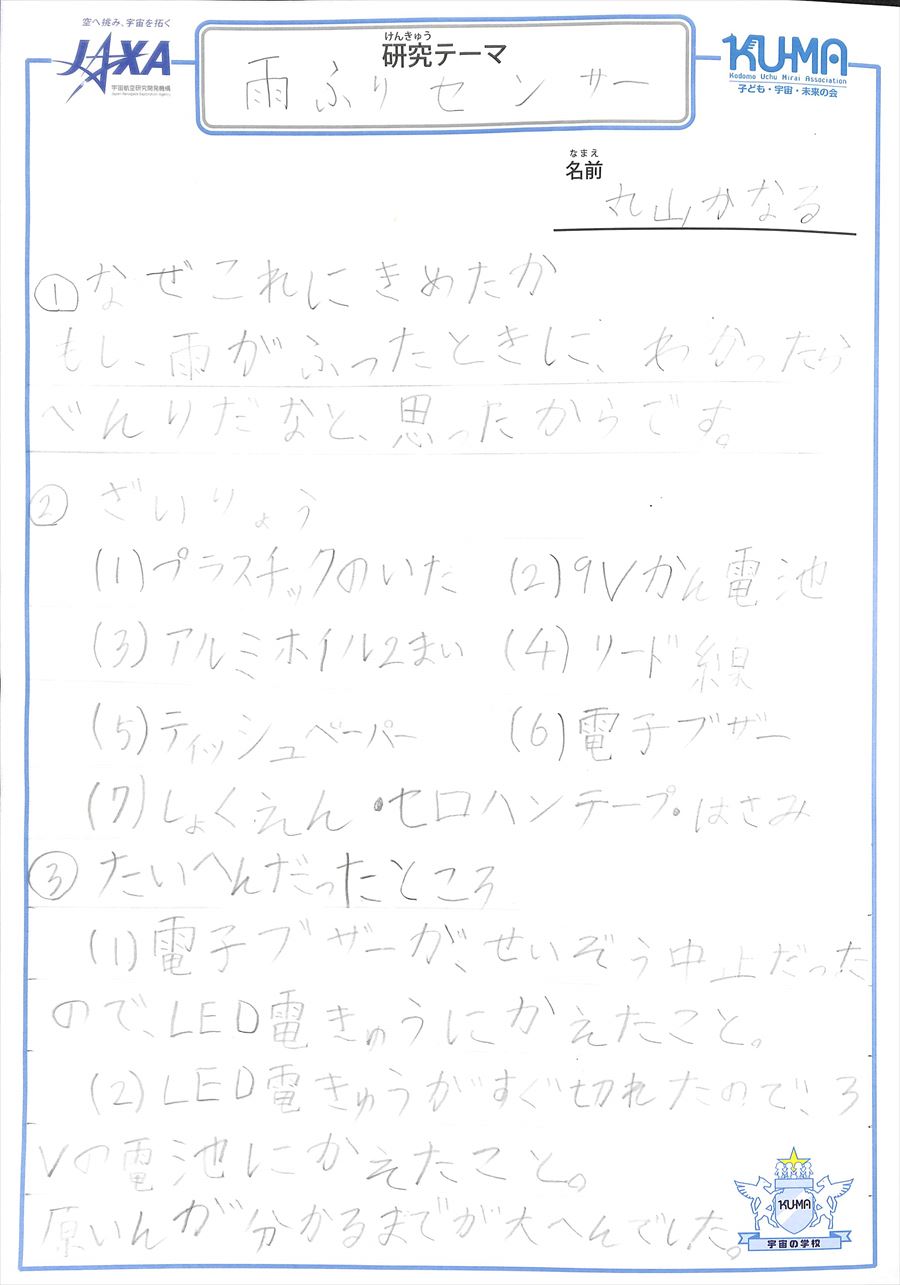 空へ挑み、宇宙を拓く
JAXA
宇宙航空研究開発機構
Japan Aerospace Exploration Agency
けんきゅう
研究テーマ
雨ふりセンサー
KU-MA
Kodomo Uchu Mirai Association
子ども・宇宙・未来の会
なまえ
名前
丸山かなる
①なぜこれにきめたか
もし、雨がふったときに、わかったら
べんりだなと、思ったからです。
②ざいりょう
(1)プラスチックのいた (2)9Vかん電池
(3)アルミホイル2まい (4)リード線
(5)ティッシュペーパー (6)電子ブザー
(7)しょくえん・セロハンテープ・はさみ
③たいへんだったところ
(1)電子ブザーが、せいぞう中止だった
ので、LED電きゅうにかえたこと。
(2)LED電きゅうがすぐ切れたので、3
Vの電池にかえたこと。
原いんが分かるまでが大へんでした。
KU-MA
宇宙の学校